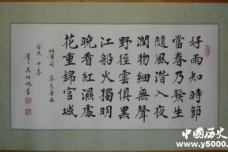 好雨知時節
當春乃發生
隨風潛入夜
潤物細無聲
野徑雲俱黑
江船火獨明
晓看紅濕處
花重錦官城
中国历史
y5000